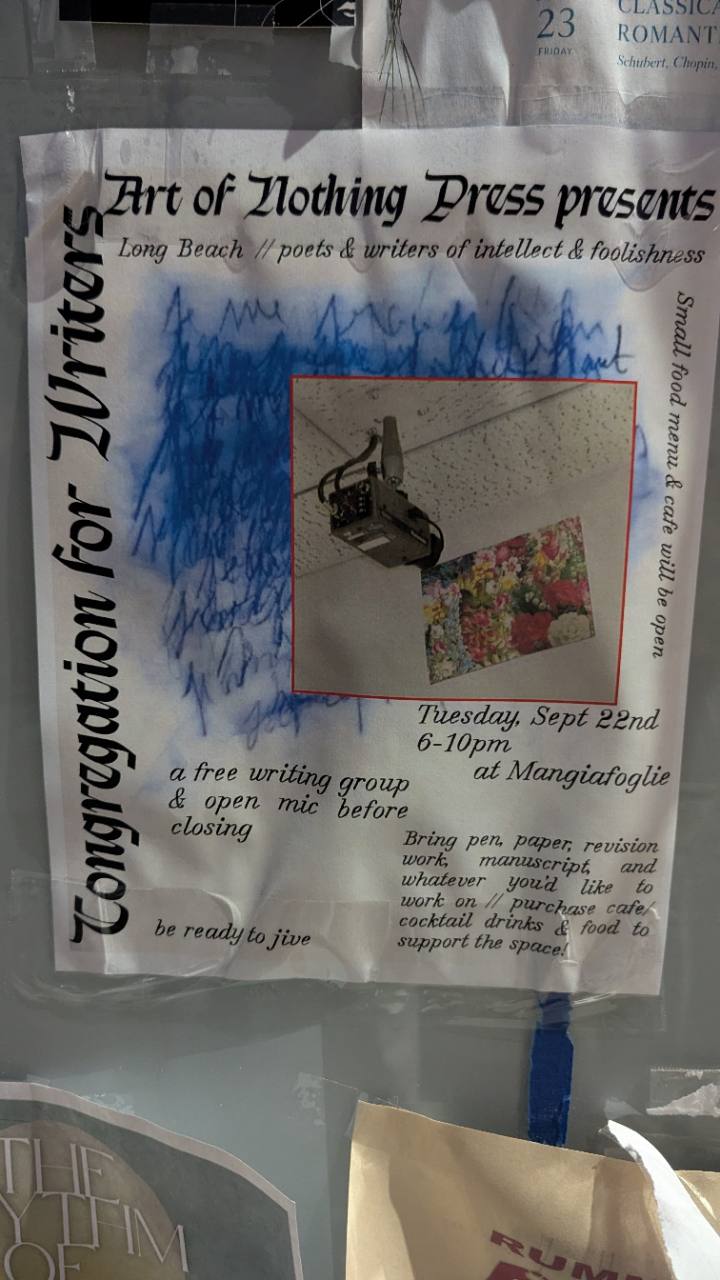 23
FRIDAY
CLASSICA
ROMANT
Schubert, Chopin,
Art of Nothing Press presents
Long Beach // poets & writers of intellect & foolishness
Congregation for Writers
Small food menu & cafe will be open
Tuesday, Sept 22nd
6-10pm
at Mangiafoglie
a free writing group
& open mic before
closing
Bring pen, paper, revision
work, manuscript, and
whatever you'd like to
work on // purchase cafe/
cocktail drinks & food to
support the space!
be ready to jive
THE
OF
RUM